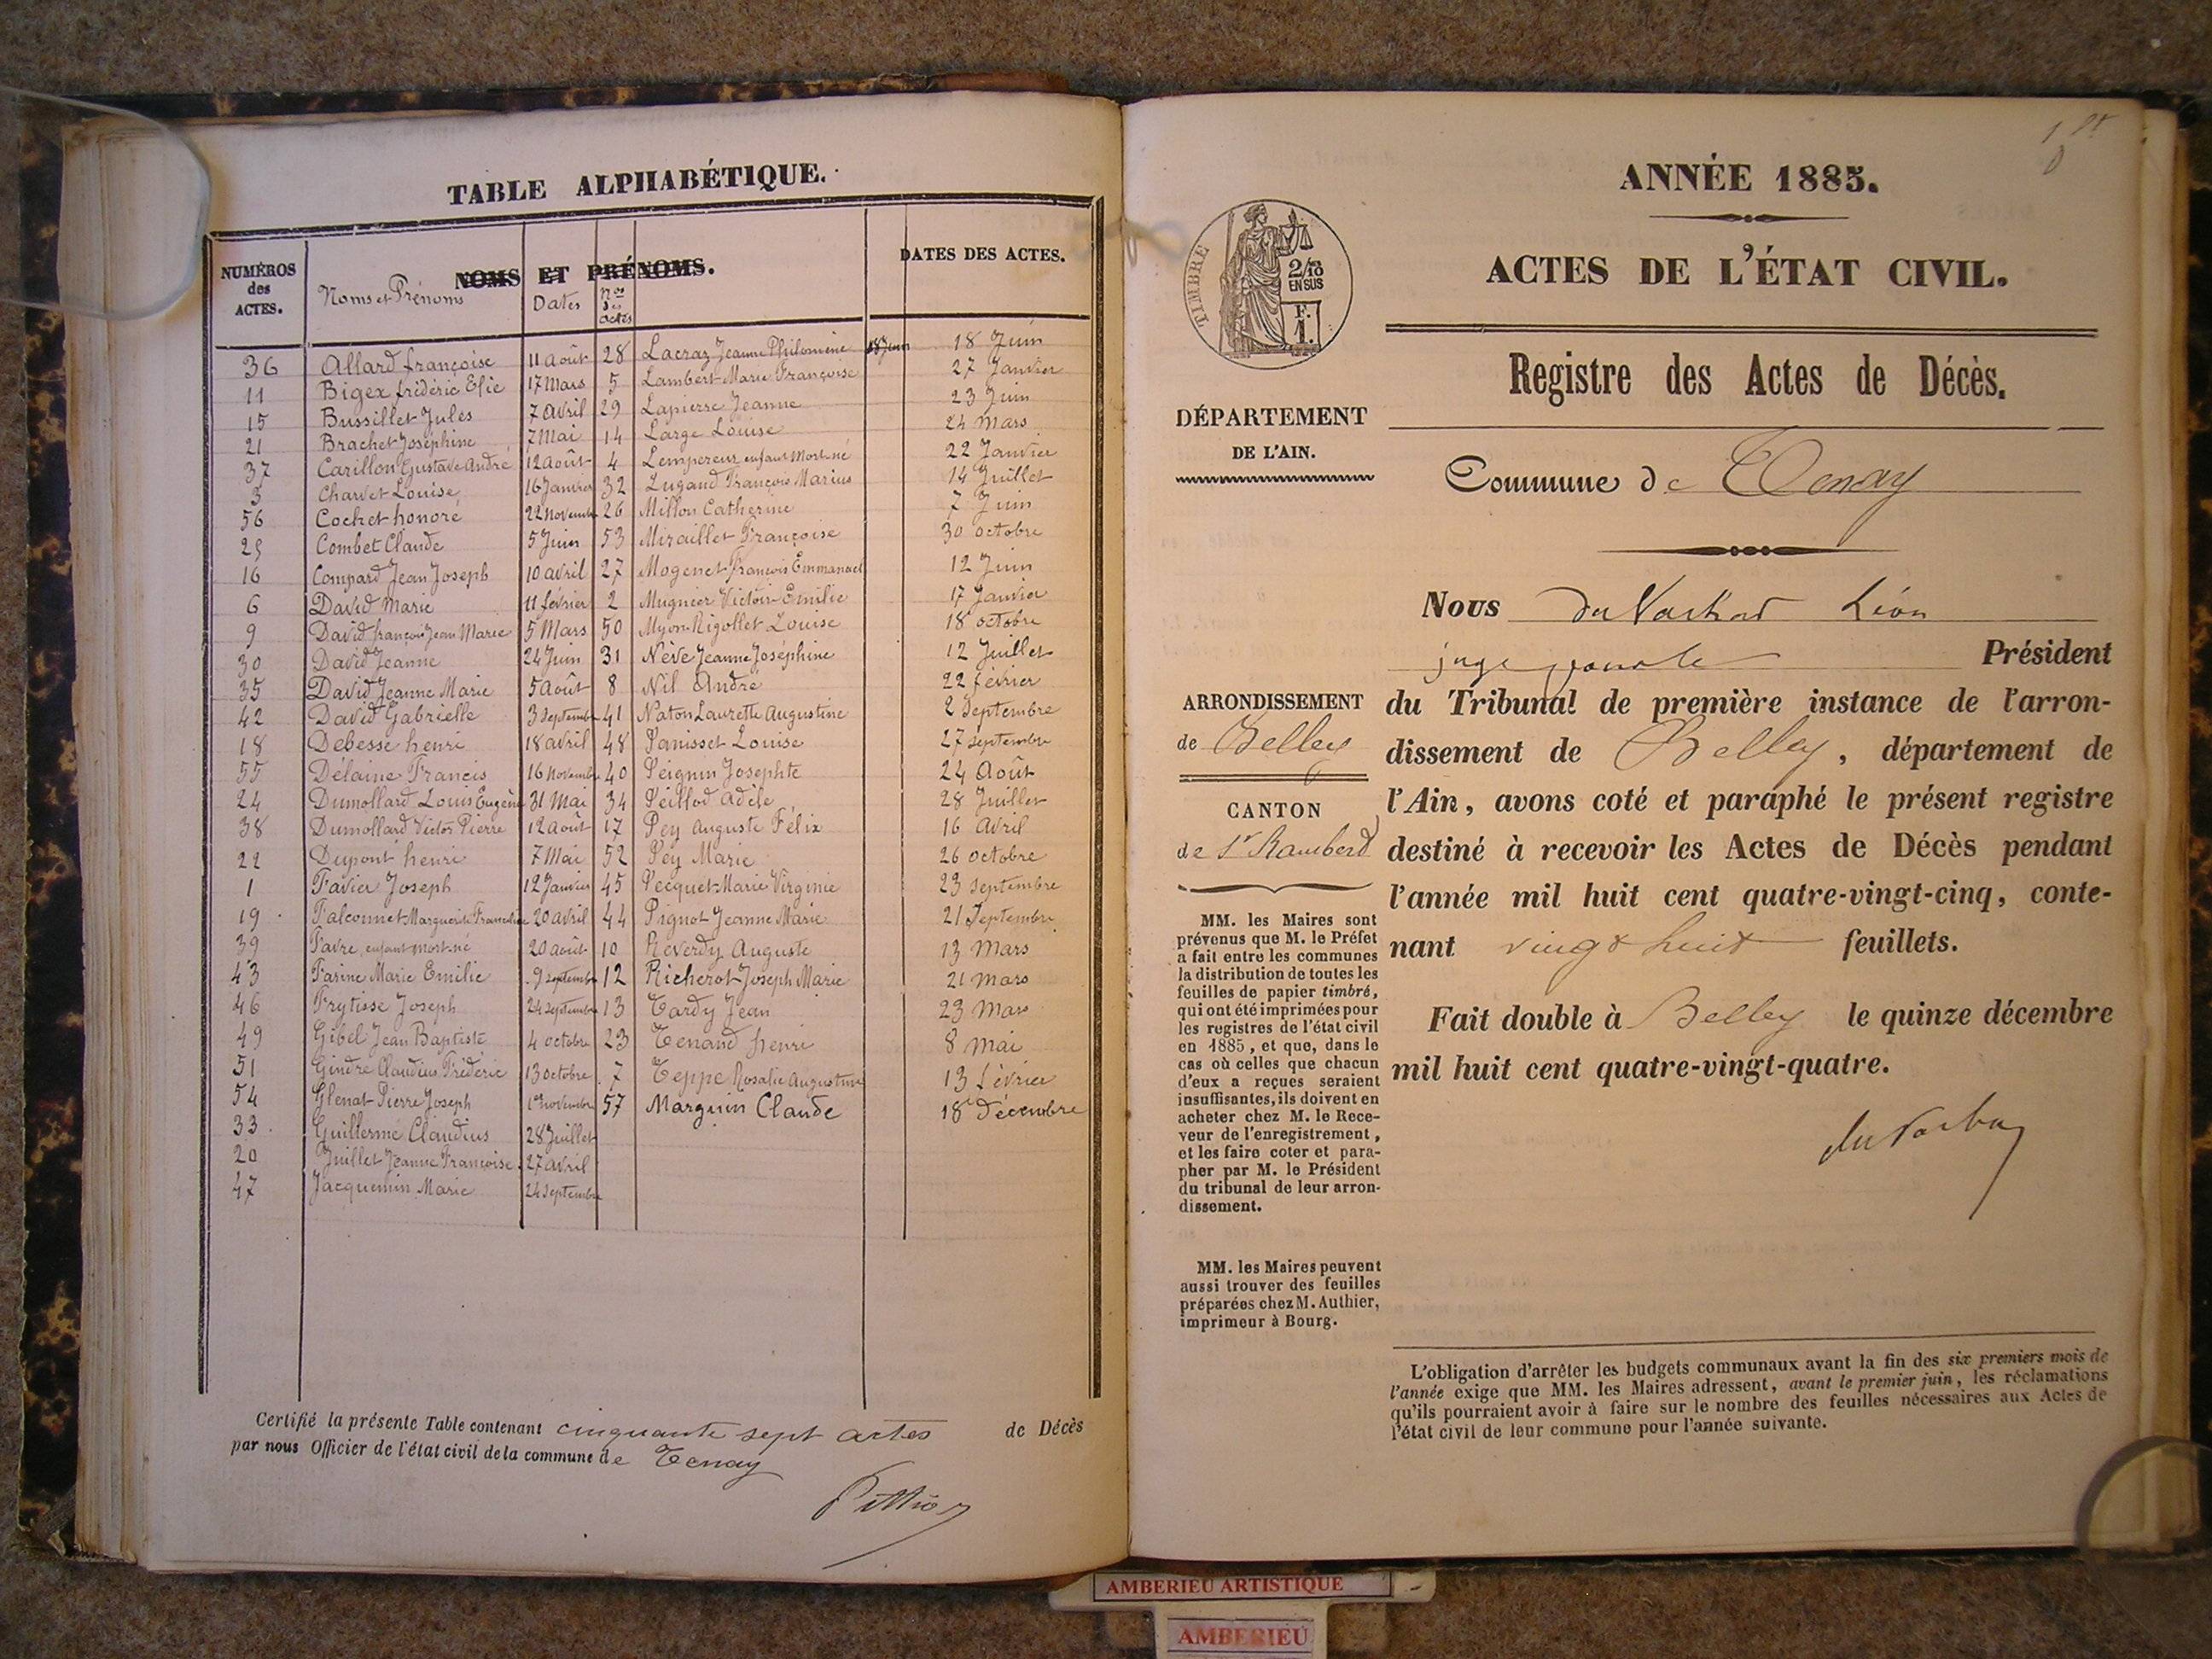 TABLE ALPHABÉTIQUE.
NUMÉROS des ACTES.
NOMS ET PRÉNOMS.
DATES DES ACTES.
Noms et Prénoms Dates Nos des actes
36 Allard françoise 11 août 28 Lacraz Jeanne Philomène 18 Juin 18 Juin
11 Bigex frédéric Elie 17 Mars 5 Lambert Marie Françoise 27 Janvier
15 Bussillet Jules 7 avril 29 Lapierre Jeanne 23 Juin
21 Brachet Joséphine 7 Mai 14 Large Louise 24 mars
37 Carillon Gustave André 12 août 4 Lempereur enfant mort-né 22 Janvier
3 Charvet Louise 16 Janvier 32 Lugand François Marius 14 Juillet
56 Cochet honoré 22 novembre 26 Millon Catherine 7 Juin
25 Combet Claude 5 Juin 53 Miraillet Françoise 30 octobre
16 Compard Jean Joseph 10 avril 27 Mogenet François Emmanuel 12 Juin
6 David Marie 11 février 2 Mugnier Victoir Emilie 17 Janvier
9 David françois Jean Marie 5 Mars 50 Myon-Rigollet Louise 18 octobre
30 David Jeanne 24 Juin 31 Nève Jeanne Joséphine 12 Juillet
35 David Jeanne Marie 5 août 8 Nil André 22 février
42 David Gabrielle 3 septembre 41 Naton Laurette Augustine 2 Septembre
18 Debesse henri 18 avril 48 Panisset Louise 27 septembre
55 Délaine Francis 16 novembre 40 Peignin Josephte 24 Août
24 Dumollard Louis Eugène 31 Mai 34 Peillod Adèle 28 Juillet
38 Dumollard Victor Pierre 12 août 17 Pey Auguste Félix 16 avril
22 Dupont henri 7 Mai 52 Pey Marie 26 octobre
1 Favier Joseph 12 Janvier 45 Pecquet Marie Virginie 23 septembre
19 Falconnet Marguerite Francoline 20 avril 44 Pignot Jeanne Marie 21 Septembre
39 Favre, enfant mort-né 20 août 10 Reverdy Auguste 13 Mars
43 Farine Marie Emilie 9 septembre 12 Richerot Joseph Marie 21 mars
46 Frytisse Joseph 24 septembre 13 Tardy Jean 23 Mars
49 Gibel Jean Baptiste 4 octobre 23 Tenand henri 8 mai
51 Gindre Claudius Frédéric 13 octobre 7 Teppe Rosalie Augustine 13 février
54 Glenat Pierre Joseph 1er novembre 57 Marguin Claude 18 Décembre
33 Guillermé Claudius 28 Juillet
20 Juillet Jeanne Françoise 27 avril
47 Jacquemin Marie 24 septembre
Certifié la présente Table contenant cinquante sept actes de Décès
par nous Officier de l'état civil de la commune de Tenay
ANNÉE 1885.
ACTES DE L'ÉTAT CIVIL.
TIMBRE
2/10
EN SUS
F.
1.
Registre des Actes de Décès.
DÉPARTEMENT
DE L'AIN.
Commune de Tenay
Nous Léon
juge Président
ARRONDISSEMENT
de Belley
CANTON
de St Rambert
du Tribunal de première instance de l'arron-
dissement de Belley, département de
l'Ain, avons coté et paraphé le présent registre
destiné à recevoir les Actes de Décès pendant
l'année mil huit cent quatre-vingt-cinq, conte-
nant vingt huit feuillets.
Fait double à Belley le quinze décembre
mil huit cent quatre-vingt-quatre.
MM. les Maires sont
prévenus que M. le Préfet
a fait entre les communes
la distribution de toutes les
feuilles de papier timbré,
qui ont été imprimées pour
les registres de l'état civil
en 1885, et que, dans le
cas où celles que chacun
d'eux a reçues seraient
insuffisantes, ils doivent en
acheter chez M. le Rece-
veur de l'enregistrement,
et les faire coter et para-
pher par M. le Président
du tribunal de leur arron-
dissement.
MM. les Maires peuvent
aussi trouver des feuilles
préparées chez M. Authier,
imprimeur à Bourg.
L'obligation d'arrêter les budgets communaux avant la fin des six premiers mois de
l'année exige que MM. les Maires adressent, avant le premier juin, les réclamations
qu'ils pourraient avoir à faire sur le nombre des feuilles nécessaires aux Actes de
l'état civil de leur commune pour l'année suivante.
AMBERIEU ARTISTIQUE
AMBERIEU